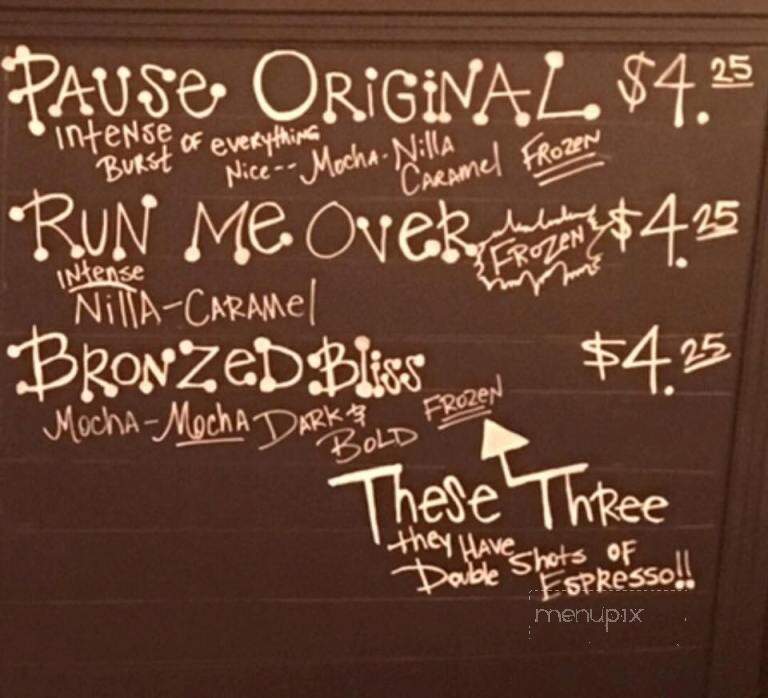 PAUSE ORIGINAL $4.25
INTENSE BURST OF everything Nice-- Mocha-Nilla CARAMEl FROZEN
RUN Me OveR FROZEN $4.25
INtense
NillA-CARAMel
BRONZeD Bliss $4.25
Mocha-Mocha DARK & BOLD FROZEN
These Three
they HAVE
Double Shots OF
ESPRESSO!!
menupix